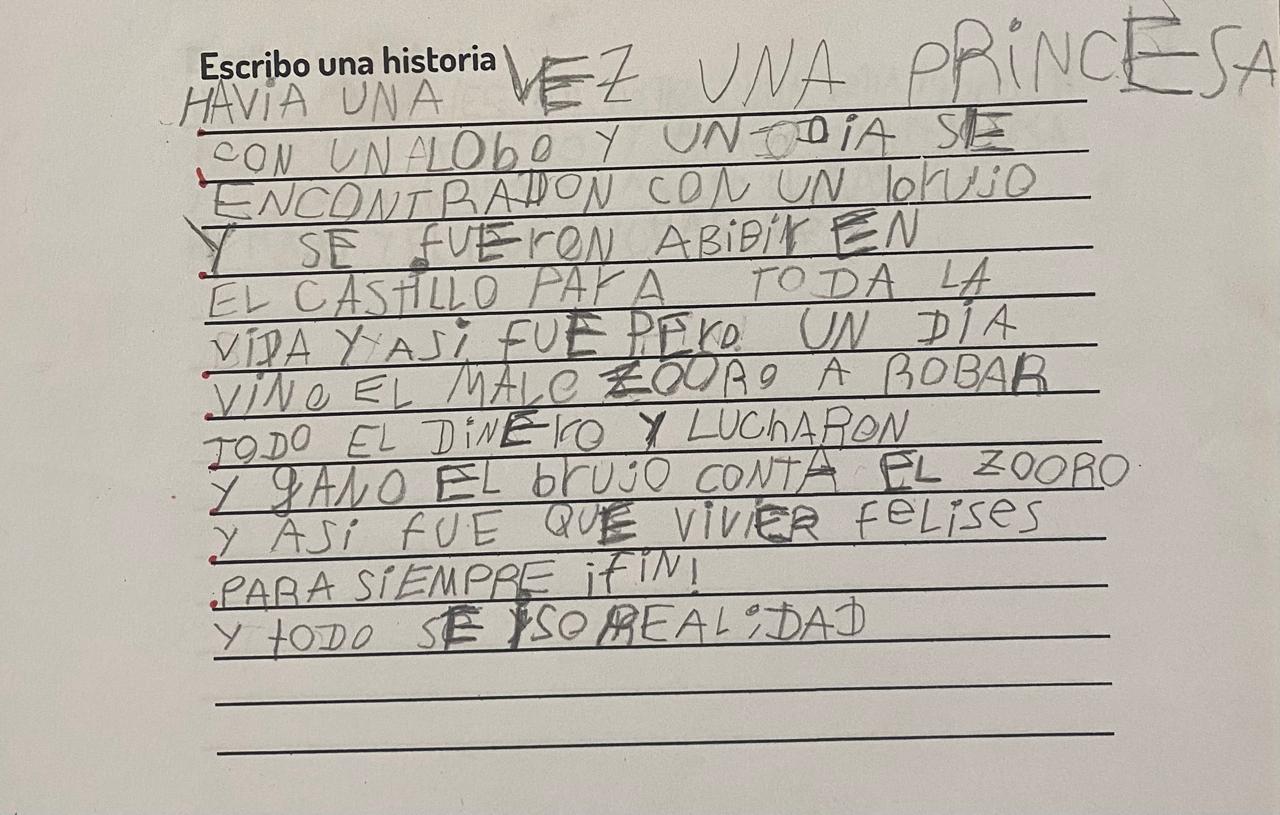 Escribo una historia
HAViA UNA VEZ UNA PRiNCESA
CON UNALObO Y UN DiA SE
ENCONTRADON CON UN brUjO
Y SE fUErON ABiBir EN
EL CAStiLLO PArA TODA LA
ViDA Y ASi fUE PErO UN DiA
ViNO EL MALO ZOORO A ROBAR
TODO EL DiNErO Y LUChARON
Y gANO EL brUjO CONTA EL ZOORO
Y ASi fUE QUE ViViER feLiSeS
PARA SiEMPRE ¡fiN!
Y tODO SE iSO REALiDAD